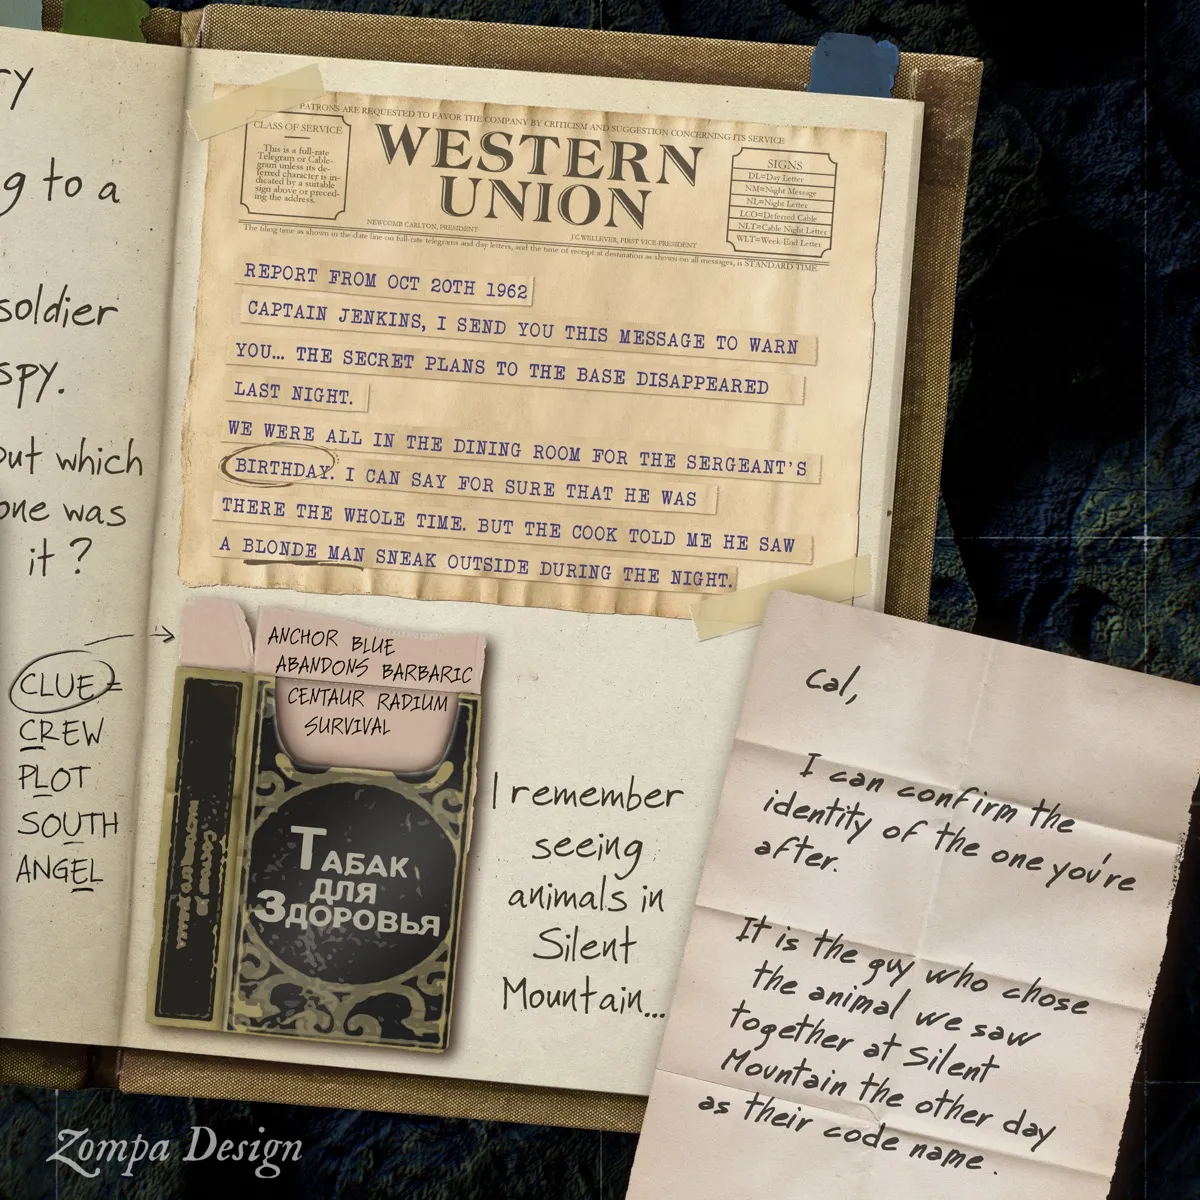 ry
g to a
soldier
spy.
but which
one was
it ?
CLUE =
CREW
PLOT
SOUTH
ANGEL
PATRONS ARE REQUESTED TO FAVOR THE COMPANY BY CRITICISM AND SUGGESTION CONCERNING ITS SERVICE
CLASS OF SERVICE
This is a full-rate
Telegram or Cable-
gram unless its de-
ferred character is in-
dicated by a suitable
sign above or preced-
ing the address.
WESTERN
UNION
NEWCOMB CARLTON, PRESIDENT
J.C. WELLEVER, FIRST VICE-PRESIDENT
SIGNS
DL=Day Letter
NM=Night Message
NL=Night Letter
LCO=Deferred Cable
NLT=Cable Night Letter
WLT=Week-End Letter
The filing time as shown in the date line on full-rate telegrams and day letters, and the time of receipt at destination as shown on all messages, is STANDARD TIME.
REPORT FROM OCT 20TH 1962
CAPTAIN JENKINS, I SEND YOU THIS MESSAGE TO WARN
YOU... THE SECRET PLANS TO THE BASE DISAPPEARED
LAST NIGHT.
WE WERE ALL IN THE DINING ROOM FOR THE SERGEANT'S
BIRTHDAY. I CAN SAY FOR SURE THAT HE WAS
THERE THE WHOLE TIME. BUT THE COOK TOLD ME HE SAW
A BLONDE MAN SNEAK OUTSIDE DURING THE NIGHT.
ANCHOR BLUE
ABANDONS BARBARIC
CENTAUR RADIUM
SURVIVAL
ТАБАК
ДЛЯ
ЗДОРОВЬЯ
I remember
seeing
animals in
Silent
Mountain...
Cal,
I can confirm the
identity of the one you're
after.
It is the guy who chose
the animal we saw
together at Silent
Mountain the other day
as their code name.
Zompa Design